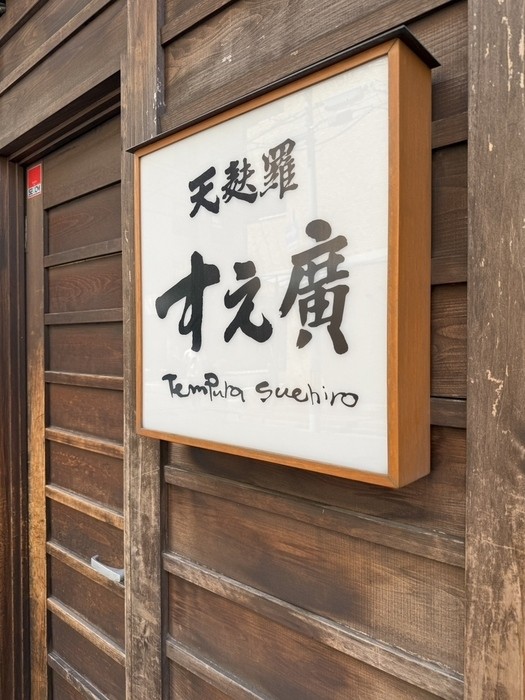 天麩羅
すえ廣
Tempura Suehiro